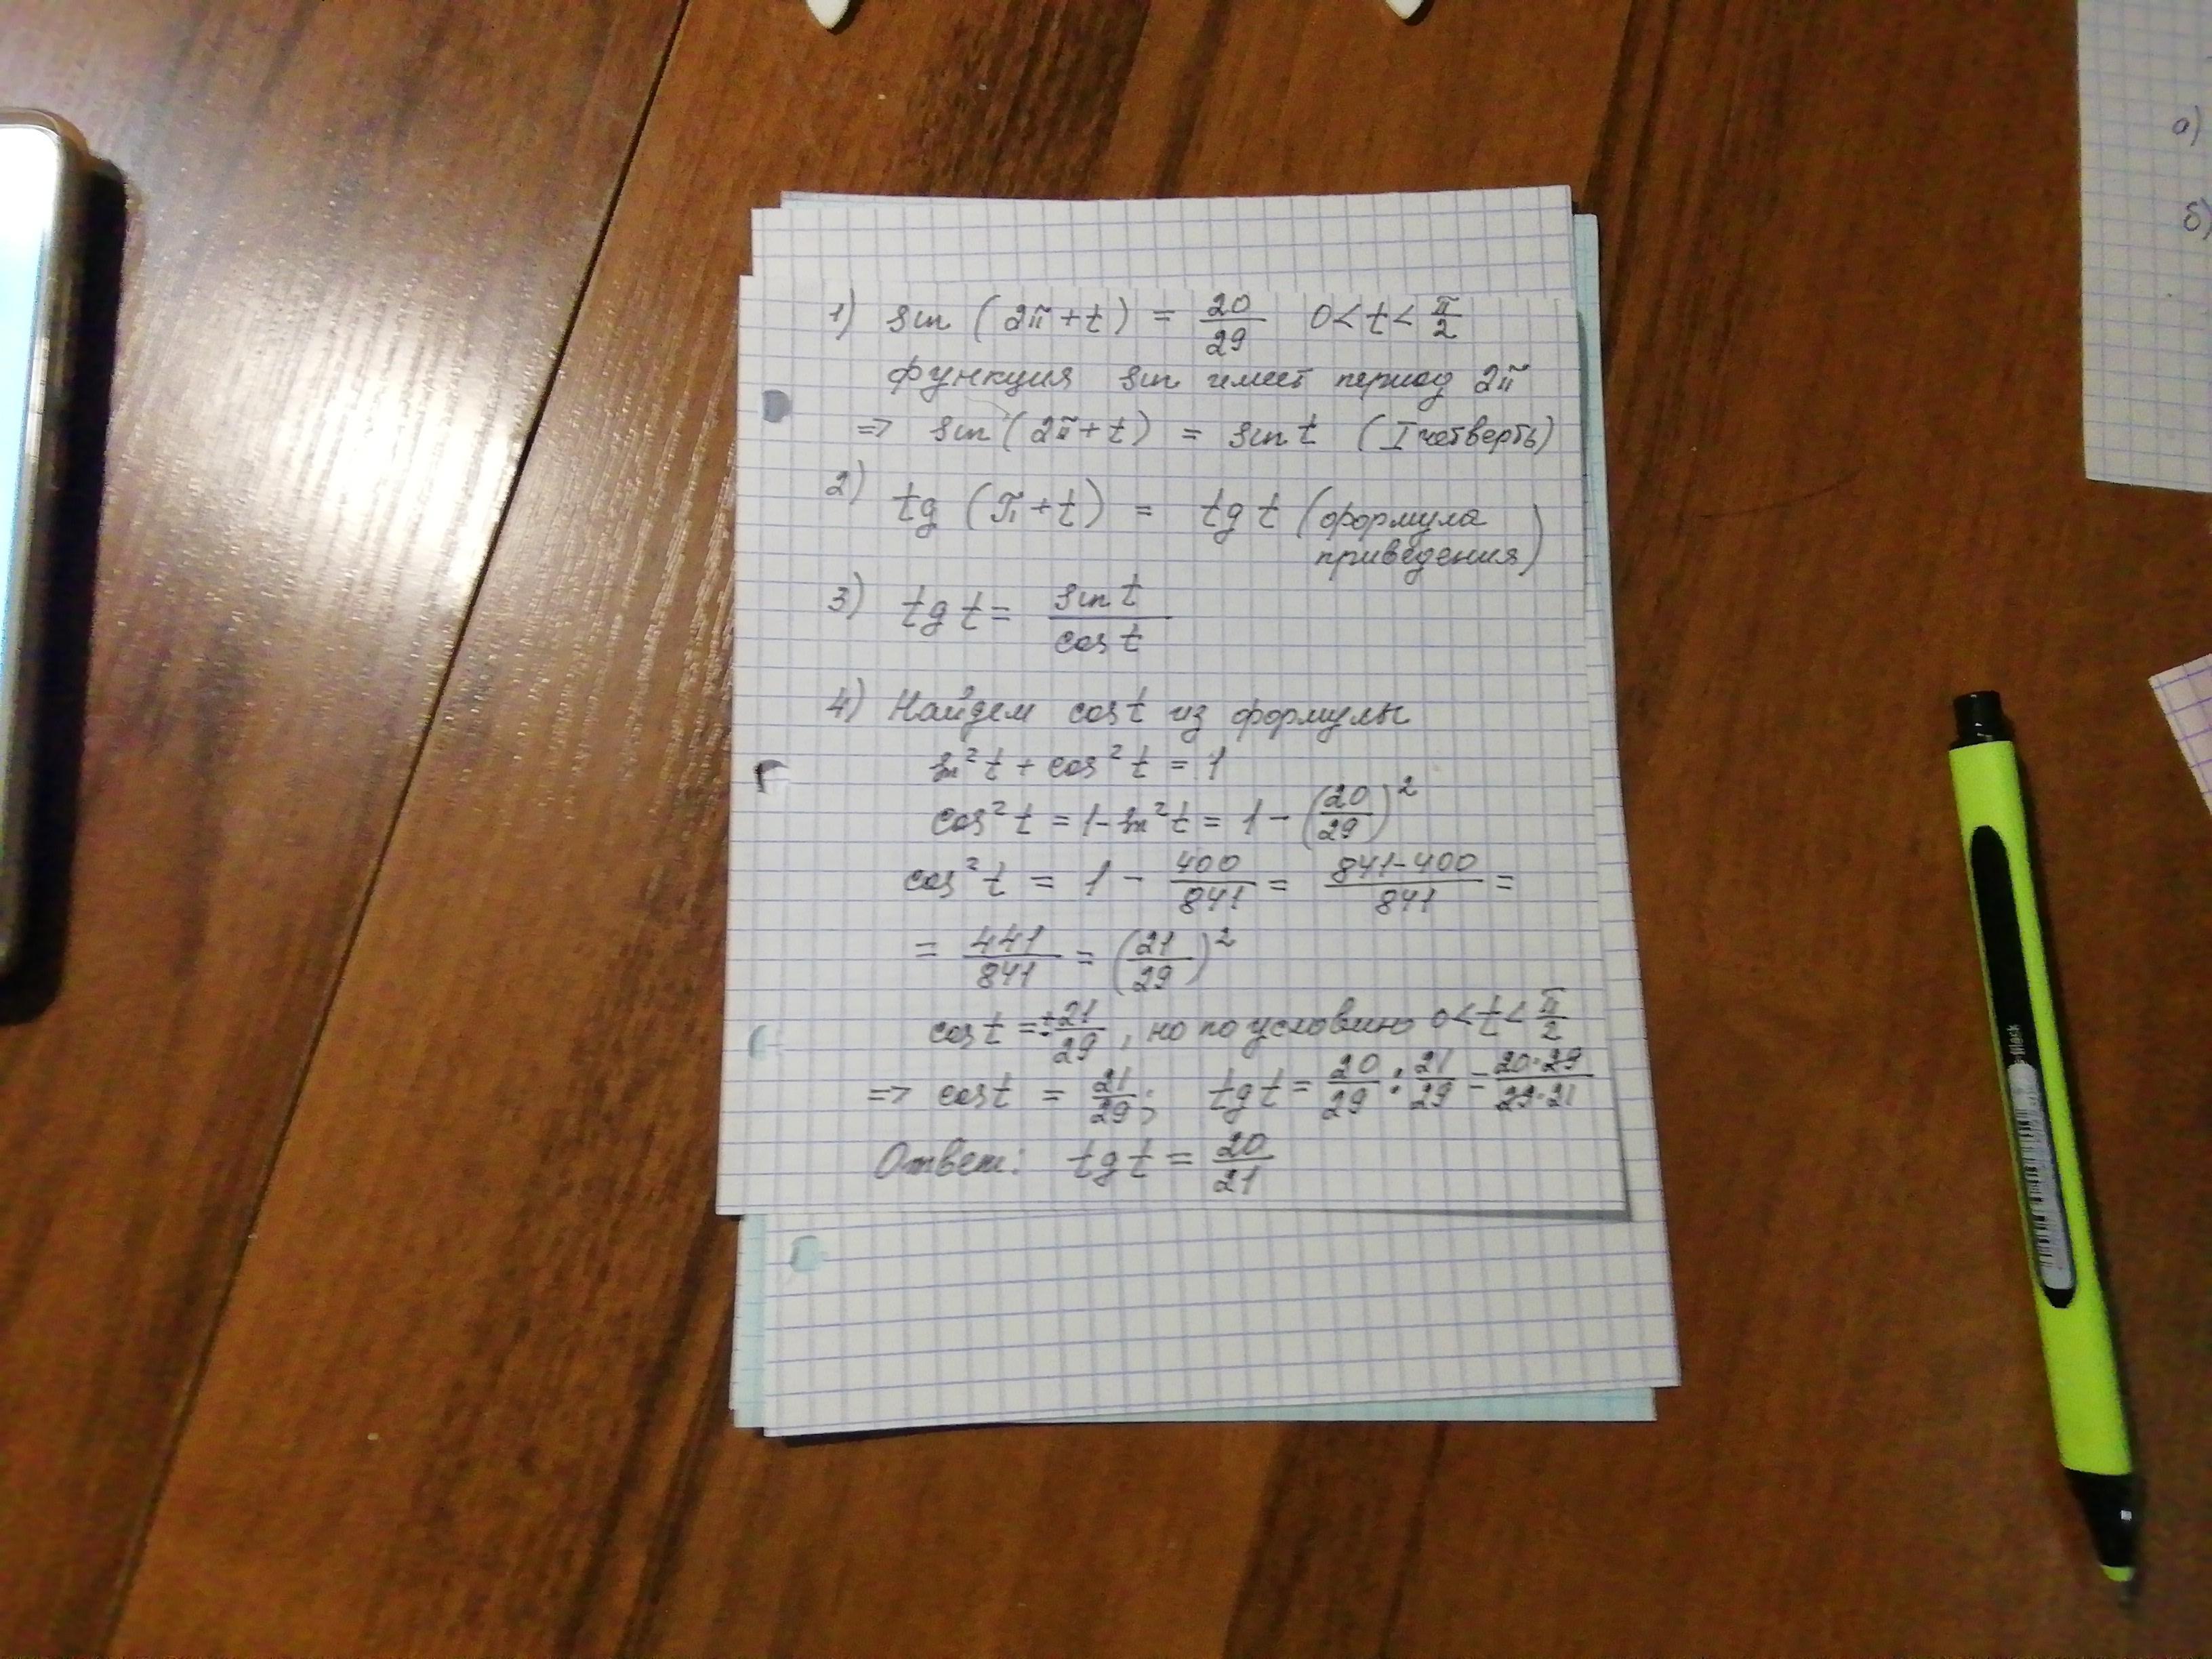 1) sin (2π+t) = 20/29 0<t<π/2
функция sin имеет период 2π
=> sin (2π+t) = sin t (I четверть)
2) tg (π+t) = tg t (формула
приведения)
3) tg t = sin t / cos t
4) Найдем cos t из формулы
sin² t + cos² t = 1
cos² t = 1 - sin² t = 1 - (20/29)²
cos² t = 1 - 400/841 = 841-400/841 =
= 441/841 = (21/29)²
cos t = ± 21/29, но по условию 0<t<π/2
=> cos t = 21/29; tg t = 20/29 : 21/29 = 20·29/29·21
Ответ: tg t = 20/21
а)
б)